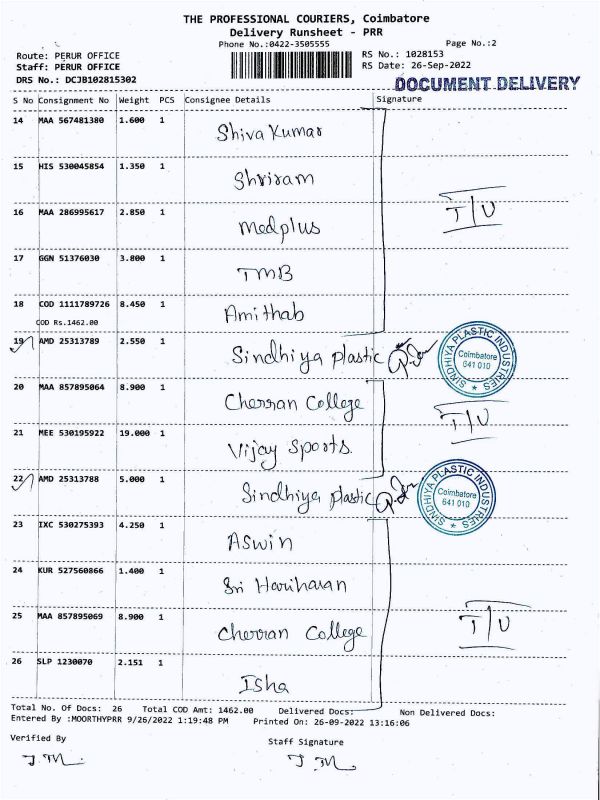 THE PROFESSIONAL COURIERS, Coimbatore
Delivery Runsheet - PRR
Phone No.:0422-3505555 Page No.:2
Route: PERUR OFFICE RS No.: 1028153
Staff: PERUR OFFICE RS Date: 26-Sep-2022
DRS No.: DCJB102815302
DOCUMENT DELIVERY
S No Consignment No Weight PCS Consignee Details Signature
14 MAA 567481380 1.600 1 Shiva Kumar
15 HIS 530045854 1.350 1 Shriram
16 MAA 286995617 2.850 1 Medplus T/U
17 GGN 51376030 3.800 1 TMB
18 COD 1111789726 8.450 1 Amithab
COD Rs.1462.00
19 AMD 25313789 2.550 1 Sindhiya plastic
SINDHIYA PLASTIC INDUSTRIES Coimbatore 641 010
20 MAA 857895064 8.900 1 Cherran College T/U
21 MEE 530195922 19.000 1 Vijay Sports.
22 AMD 25313788 5.000 1 Sindhiya plastic
SINDHIYA PLASTIC INDUSTRIES Coimbatore 641 010
23 IXC 530275393 4.250 1 Aswin
24 KUR 527560866 1.400 1 Sri Hariharan
25 MAA 857895069 8.900 1 Cherran College T/U
26 SLP 1230070 2.151 1 Isha
Total No. Of Docs: 26 Total COD Amt: 1462.00 Delivered Docs: Non Delivered Docs:
Entered By :MOORTHYPRR 9/26/2022 1:19:48 PM Printed On: 26-09-2022 13:16:06
Verified By Staff Signature